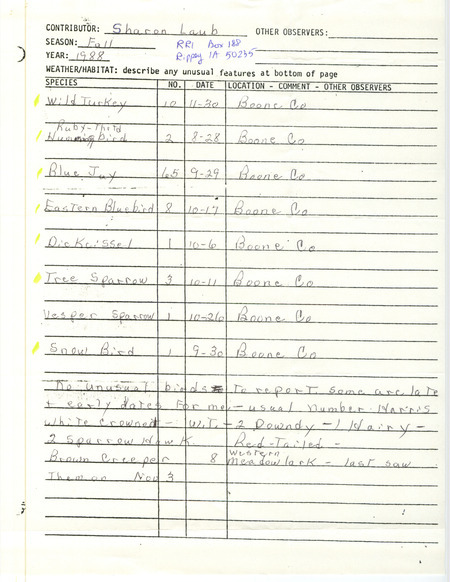 CONTRIBUTOR: Sharon Laub OTHER OBSERVERS:
SEASON: Fall RR1 Box 188
YEAR: 1988 Rippey IA 50235
WEATHER/HABITAT: describe any unusual features at bottom of page
SPECIES NO. DATE LOCATION - COMMENT - OTHER OBSERVERS
Wild Turkey 10 11-30 Boone Co
Ruby-Throtd
Hummingbird 2 8-28 Boone Co
Blue Jay 65 9-29 Boone Co
Eastern Bluebird 8 10-17 Boone Co
Dickcissel 1 10-6 Boone Co
Tree Sparrow 3 10-11 Boone Co
Vesper Sparrow 1 10-26 Boone Co
Snow Bird 1 9-30 Boone Co
No unusual birds to report some are late
+ early dates for me - usual number Harris
White Crowned - W.T. - 2 Downdy - 1 Hairy -
2 Sparrow Hawk Red-Tailed -
Brown Creeper 8 Western Meadowlark - last saw
Them on Nov 3